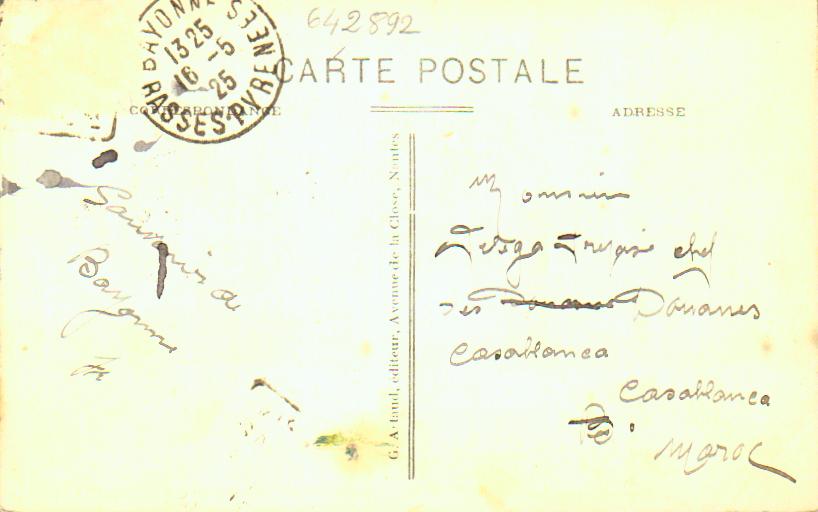 642892
BAYONNE
13 25
16 - 5
25
BASSES-PYRENEES
CARTE POSTALE
CORRESPONDANCE
ADRESSE
Souvenir de
Bayonne
G. Artaud, éditeur, Avenue de la Close, Nantes
Monsieur
chef
des Douanes Douanes
Casablanca
Casablanca
Maroc